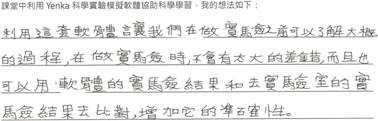 課堂中利用 Yenka 科學實驗模擬軟體協助科學學習，我的想法如下：
利用這套軟體讓我們在做實驗之前可以了解大概
的過程，在做實驗時，不會有太大的差錯，而且也
可以用軟體的實驗結果和去實驗室的實
驗結果去比對，增加它的準確性。